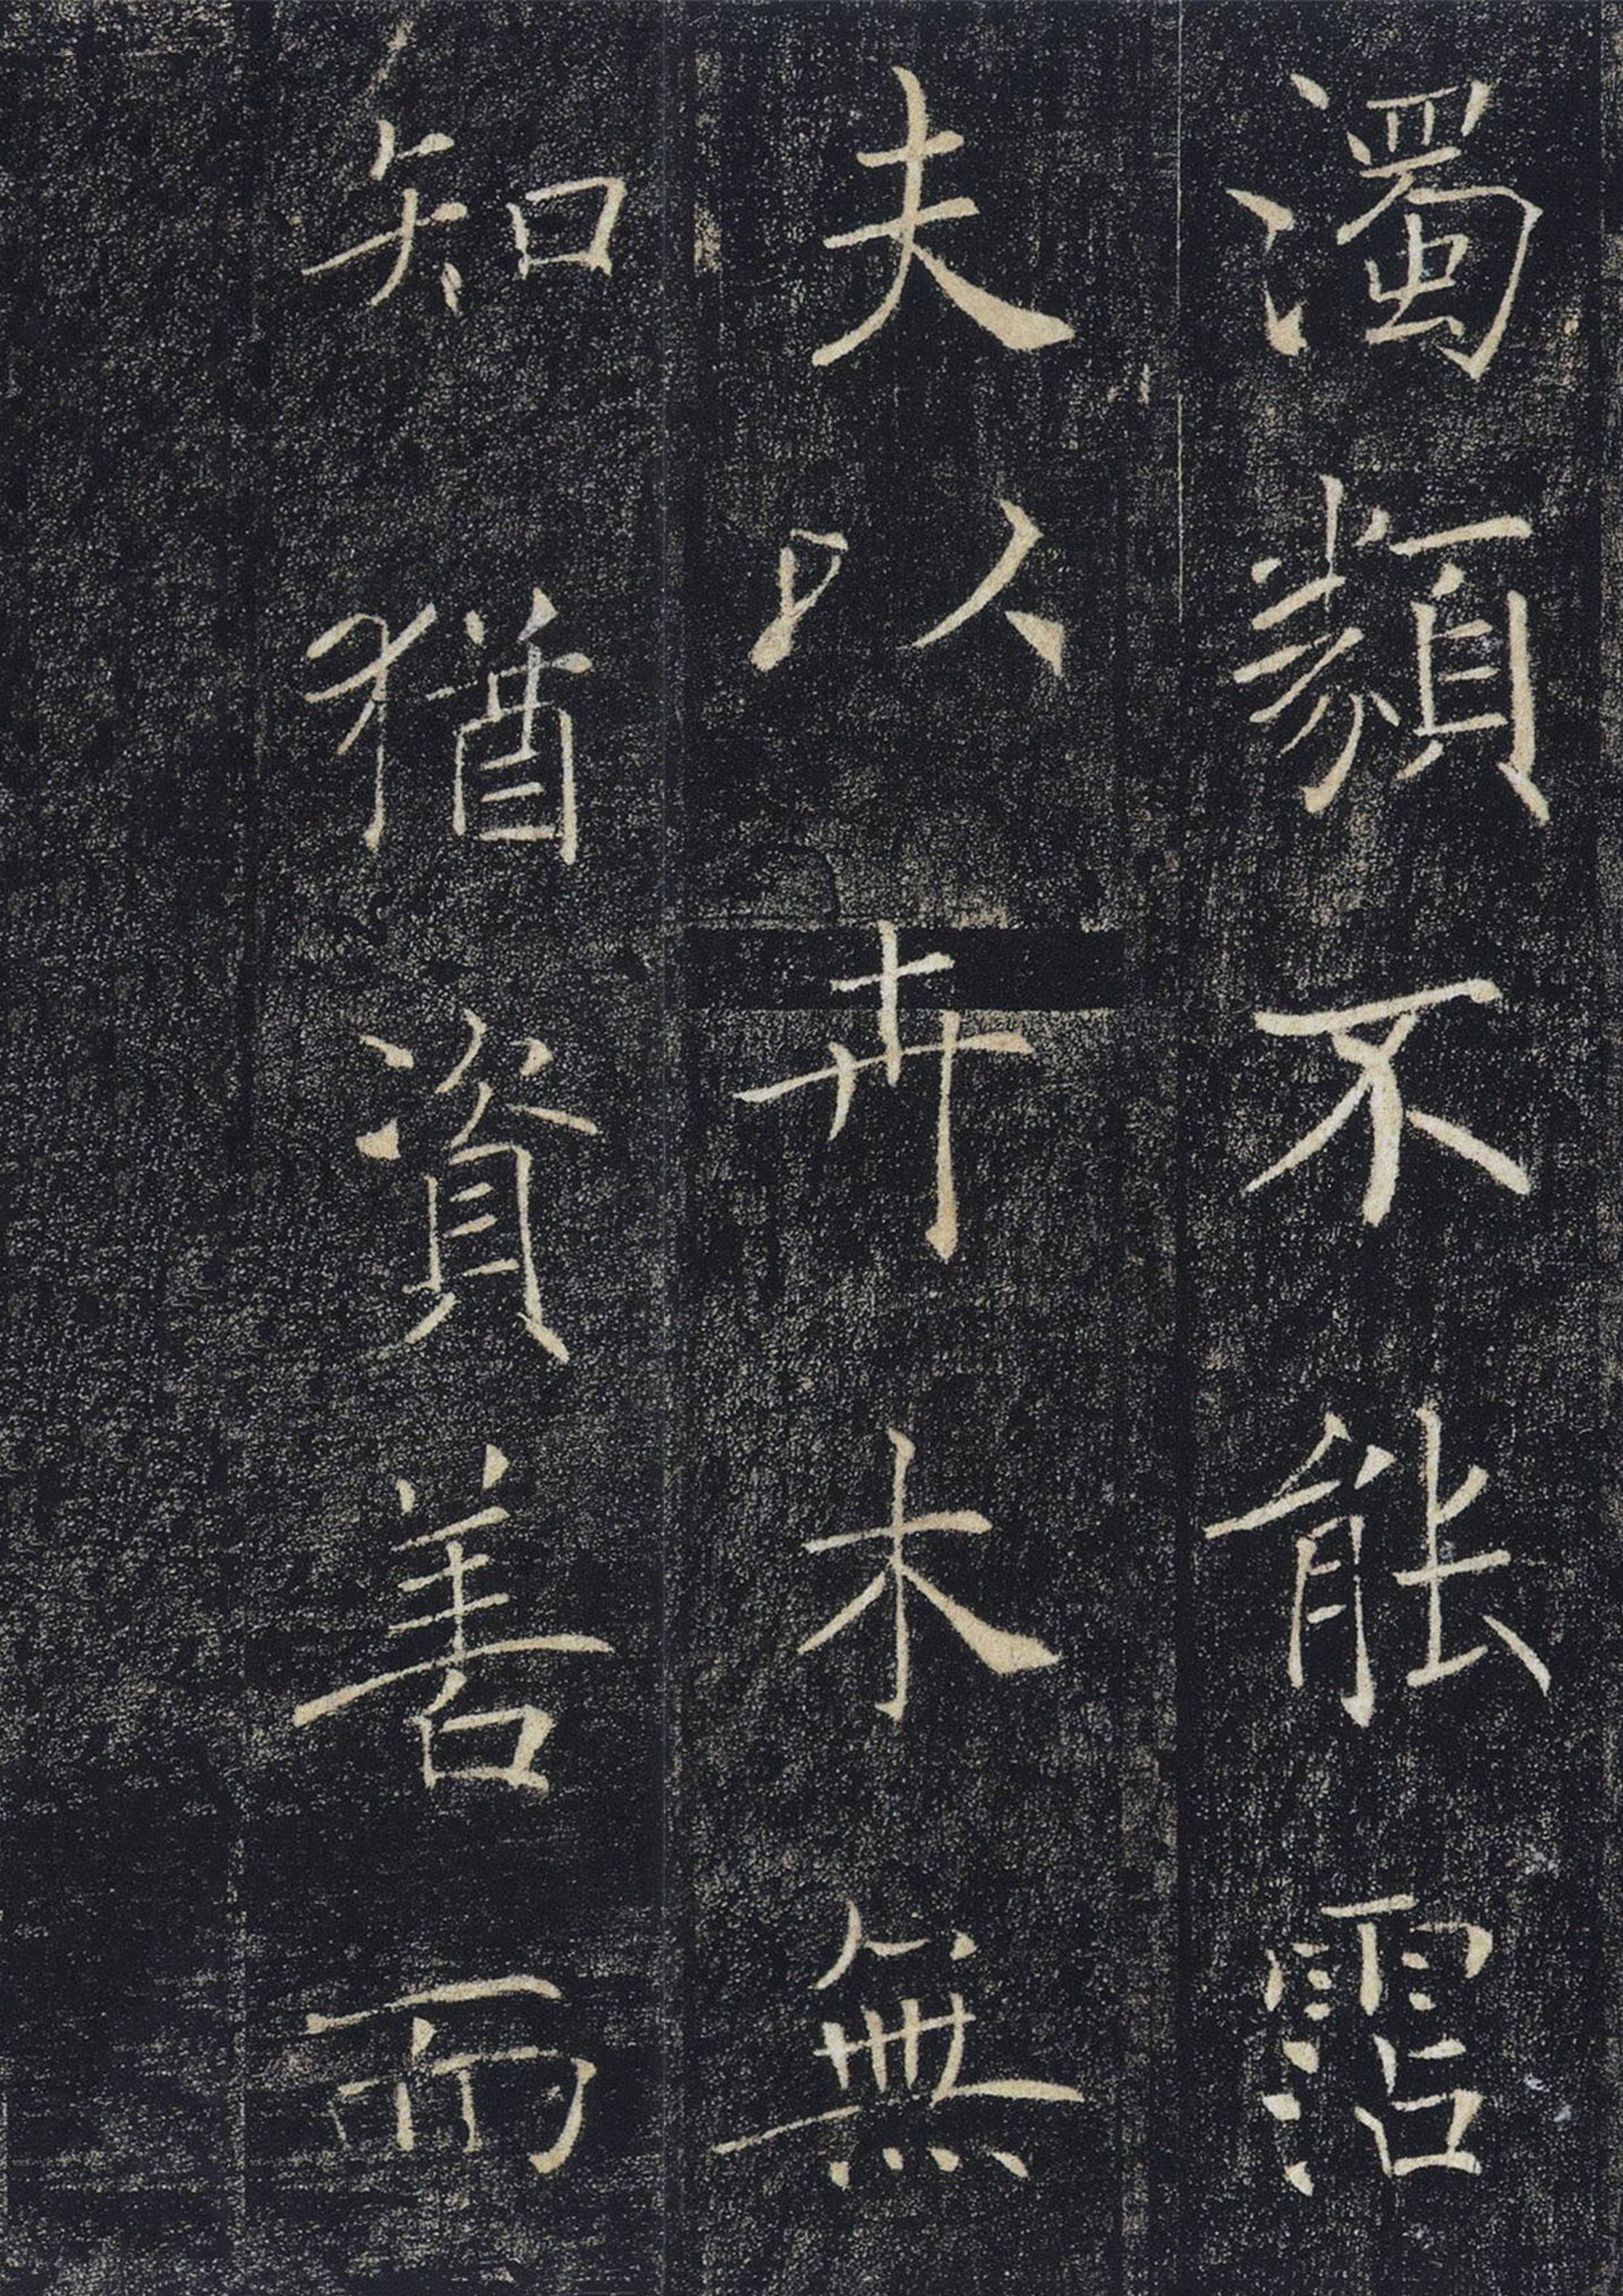 濁類不能霑
夫以卉木無
知猶資善而